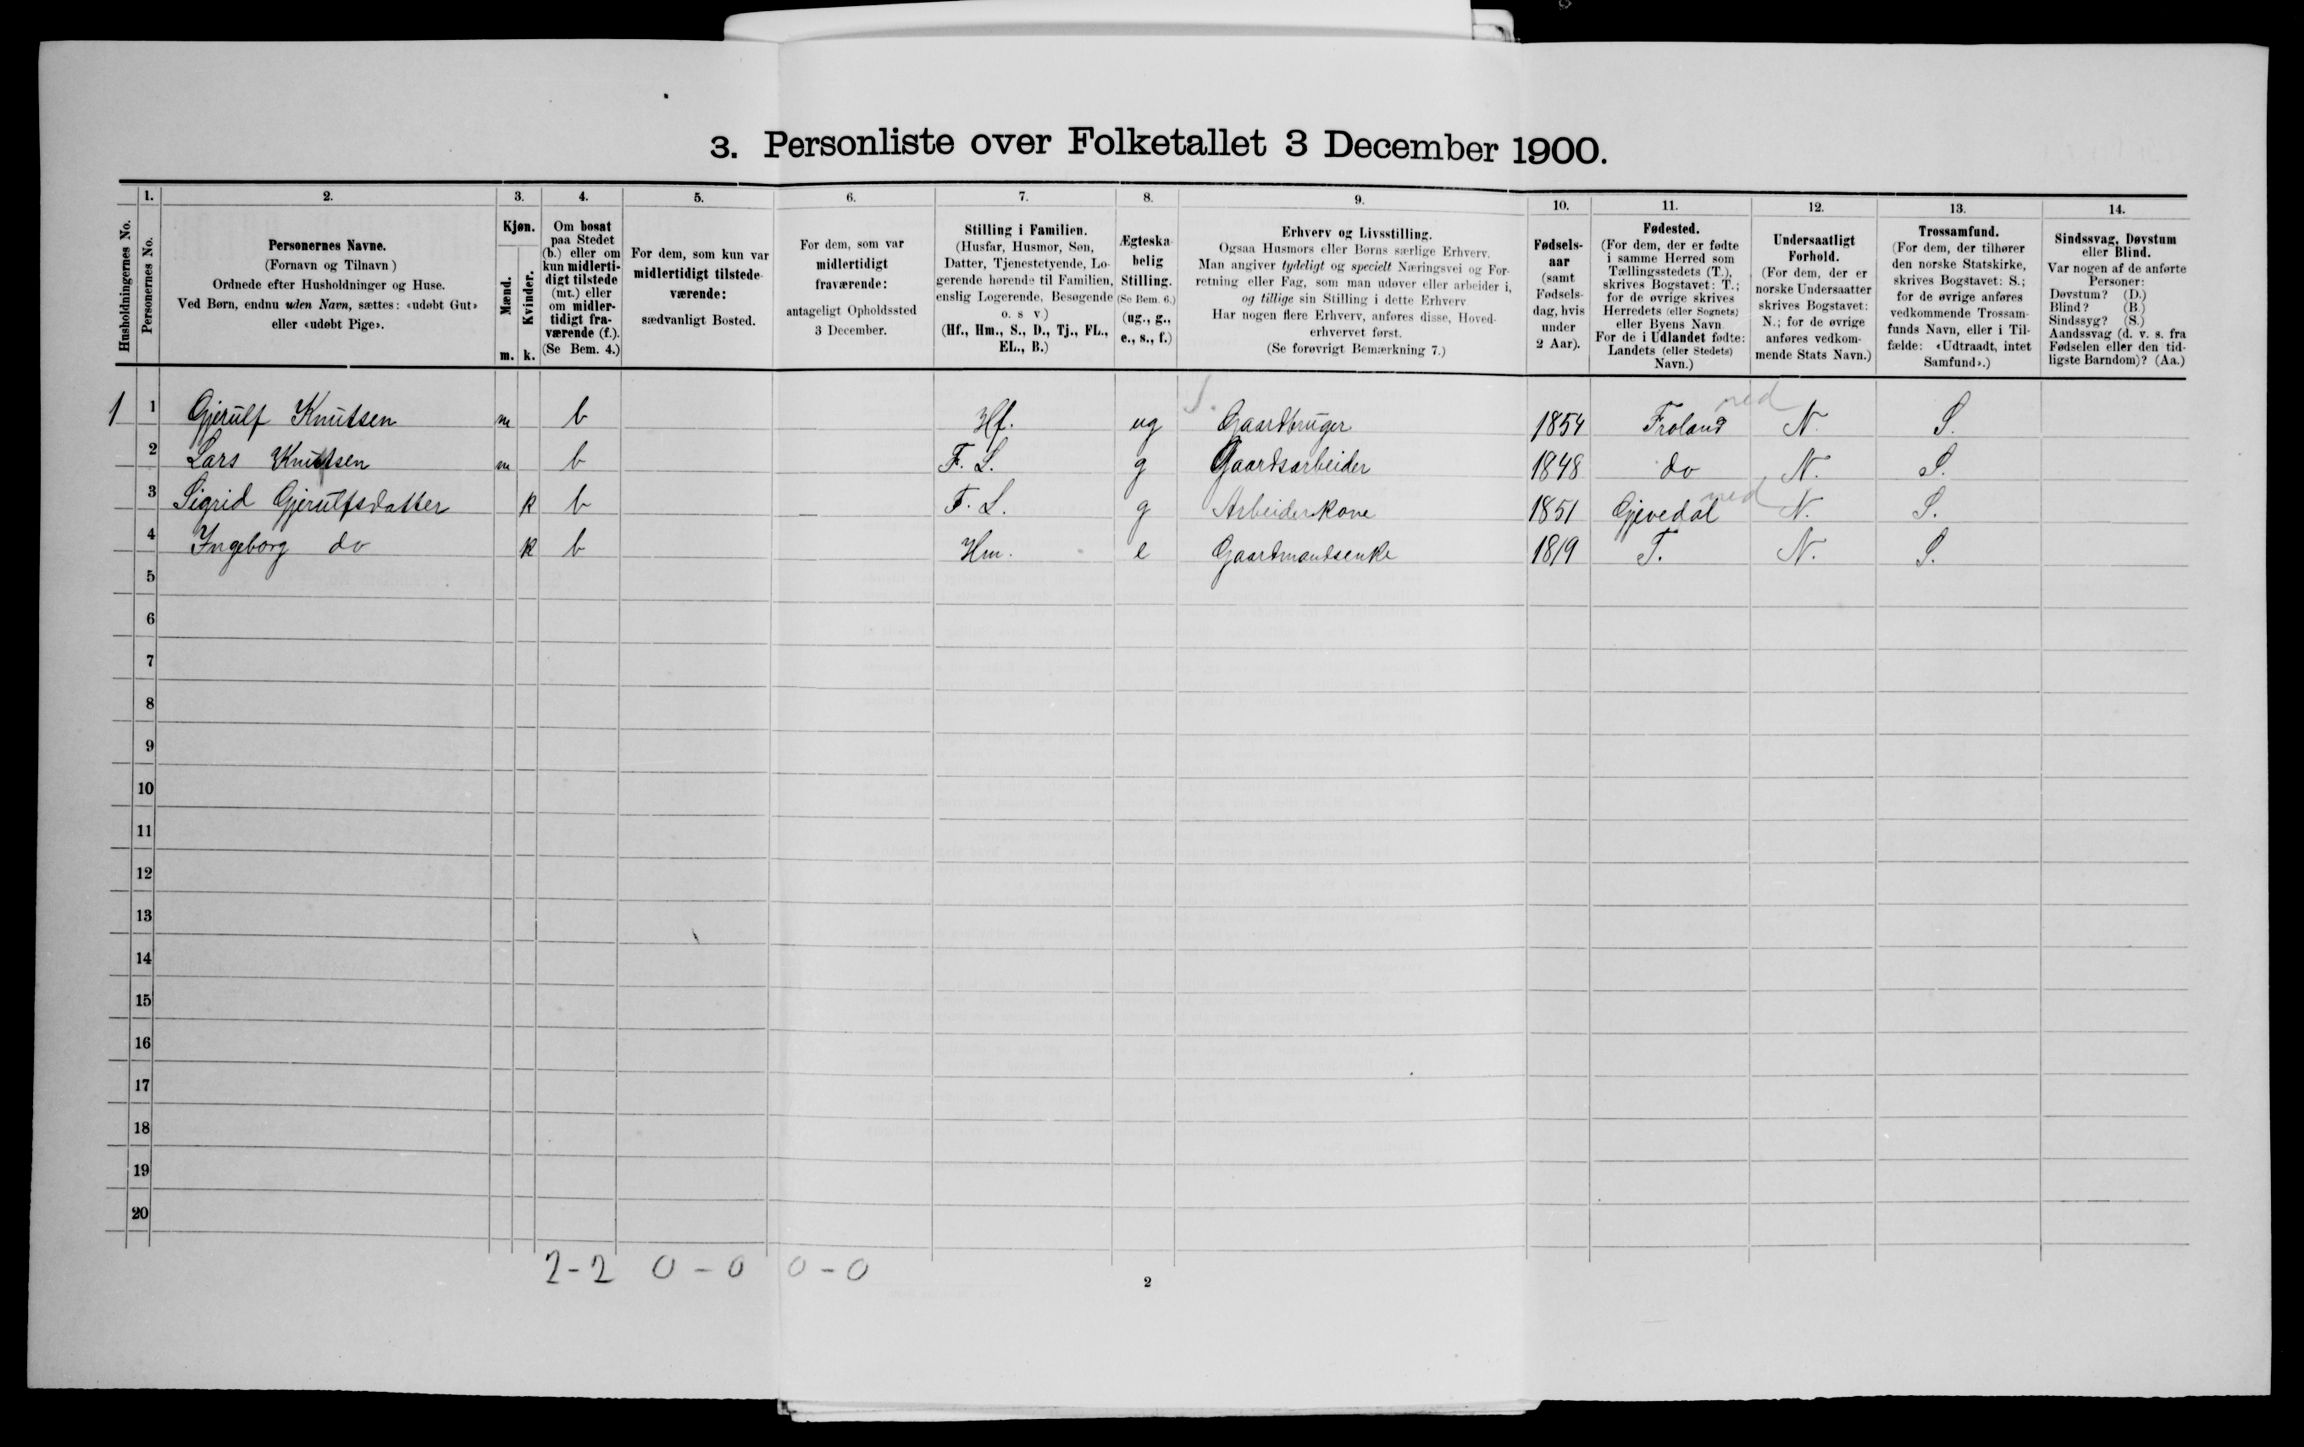 3. Personliste over Folketallet 3 December 1900.
Husholdningernes No.
1.
Personernes No.
2.
Personernes Navne.
(Fornavn og Tilnavn)
Ordnede efter Husholdninger og Huse.
Ved Børn, endnu uden Navn, sættes: «udøbt Gut»
eller «udøbt Pige».
3.
Kjøn.
Mænd.
Kvinder.
m. k.
4.
Om bosat
paa Stedet
(b.) eller om
kun midlerti-
digt tilstede
(mt.) eller
om midler-
tidigt fra-
værende (f.).
(Se Bem. 4.)
5.
For dem, som kun var
midlertidigt tilstede-
værende:
sædvanligt Bosted.
6.
For dem, som var
midlertidigt
fraværende:
antageligt Opholdssted
3 December.
7.
Stilling i Familien.
(Husfar, Husmor, Søn,
Datter, Tjenestetyende, Lo-
gerende hørende til Familien,
enslig Logerende, Besøgende
o. s v)
(Hf., Hm., S., D., Tj., FL.,
EL., B.)
8.
Ægteska-
belig
Stilling.
(Se Bem. 6.)
(ug., g.,
e., s., f.)
9.
Erhverv og Livsstilling.
Ogsaa Husmors eller Børns særlige Erhverv.
Man angiver tydeligt og specielt Næringsvei og For-
retning eller Fag, som man udøver eller arbeider i,
og tillige sin Stilling i dette Erhverv
Har nogen flere Erhverv, anføres disse, Hoved-
erhvervet først.
(Se forøvrigt Bemærkning 7.)
10.
Fødsels-
aar
(samt
Fødsels-
dag, hvis
under
2 Aar).
11.
Fødested.
(For dem, der er fødte
i samme Herred som
Tællingsstedets (T.),
skrives Bogstavet: T.;
for de øvrige skrives
Herredets (eller Sognets)
eller Byens Navn
For de i Udlandet fødte:
Landets (eller Stedets)
Navn.)
12.
Undersaatligt
Forhold.
(For dem, der er
norske Undersaatter
skrives Bogstavet:
N.; for de øvrige
anføres vedkom-
mende Stats Navn.)
13.
Trossamfund.
(For dem, der tilhører
den norske Statskirke,
skrives Bogstavet: S.;
for de øvrige anføres
vedkommende Trossam-
funds Navn, eller i Til-
fælde: «Udtraadt, intet
Samfund».)
14.
Sindssvag, Døvstum
eller Blind.
Var nogen af de anførte
Personer:
Døvstum? (D.)
Blind? (B.)
Sindssyg? (S.)
Aandssvag (d. v. s. fra
Fødselen eller den tid-
ligste Barndom)? (Aa.)
1 1 Gjerulf Knutsen m b Hf. ug Gaardbruger 1854 Froland ned N. S.
2 Lars Knutsen m b F. L. g Gaardsarbeider 1848 do N. S.
3 Sigrid Gjerulfsdatter k b F. L. g Arbeiderkone 1851 Gjevedal ned N. S.
4 Ingeborg do k b Hm. e Gaardmandsenke 1819 T. N. S.
5
6
7
8
9
10
11
12
13
14
15
16
17
18
19
20
2-2 0-0 0-0
2